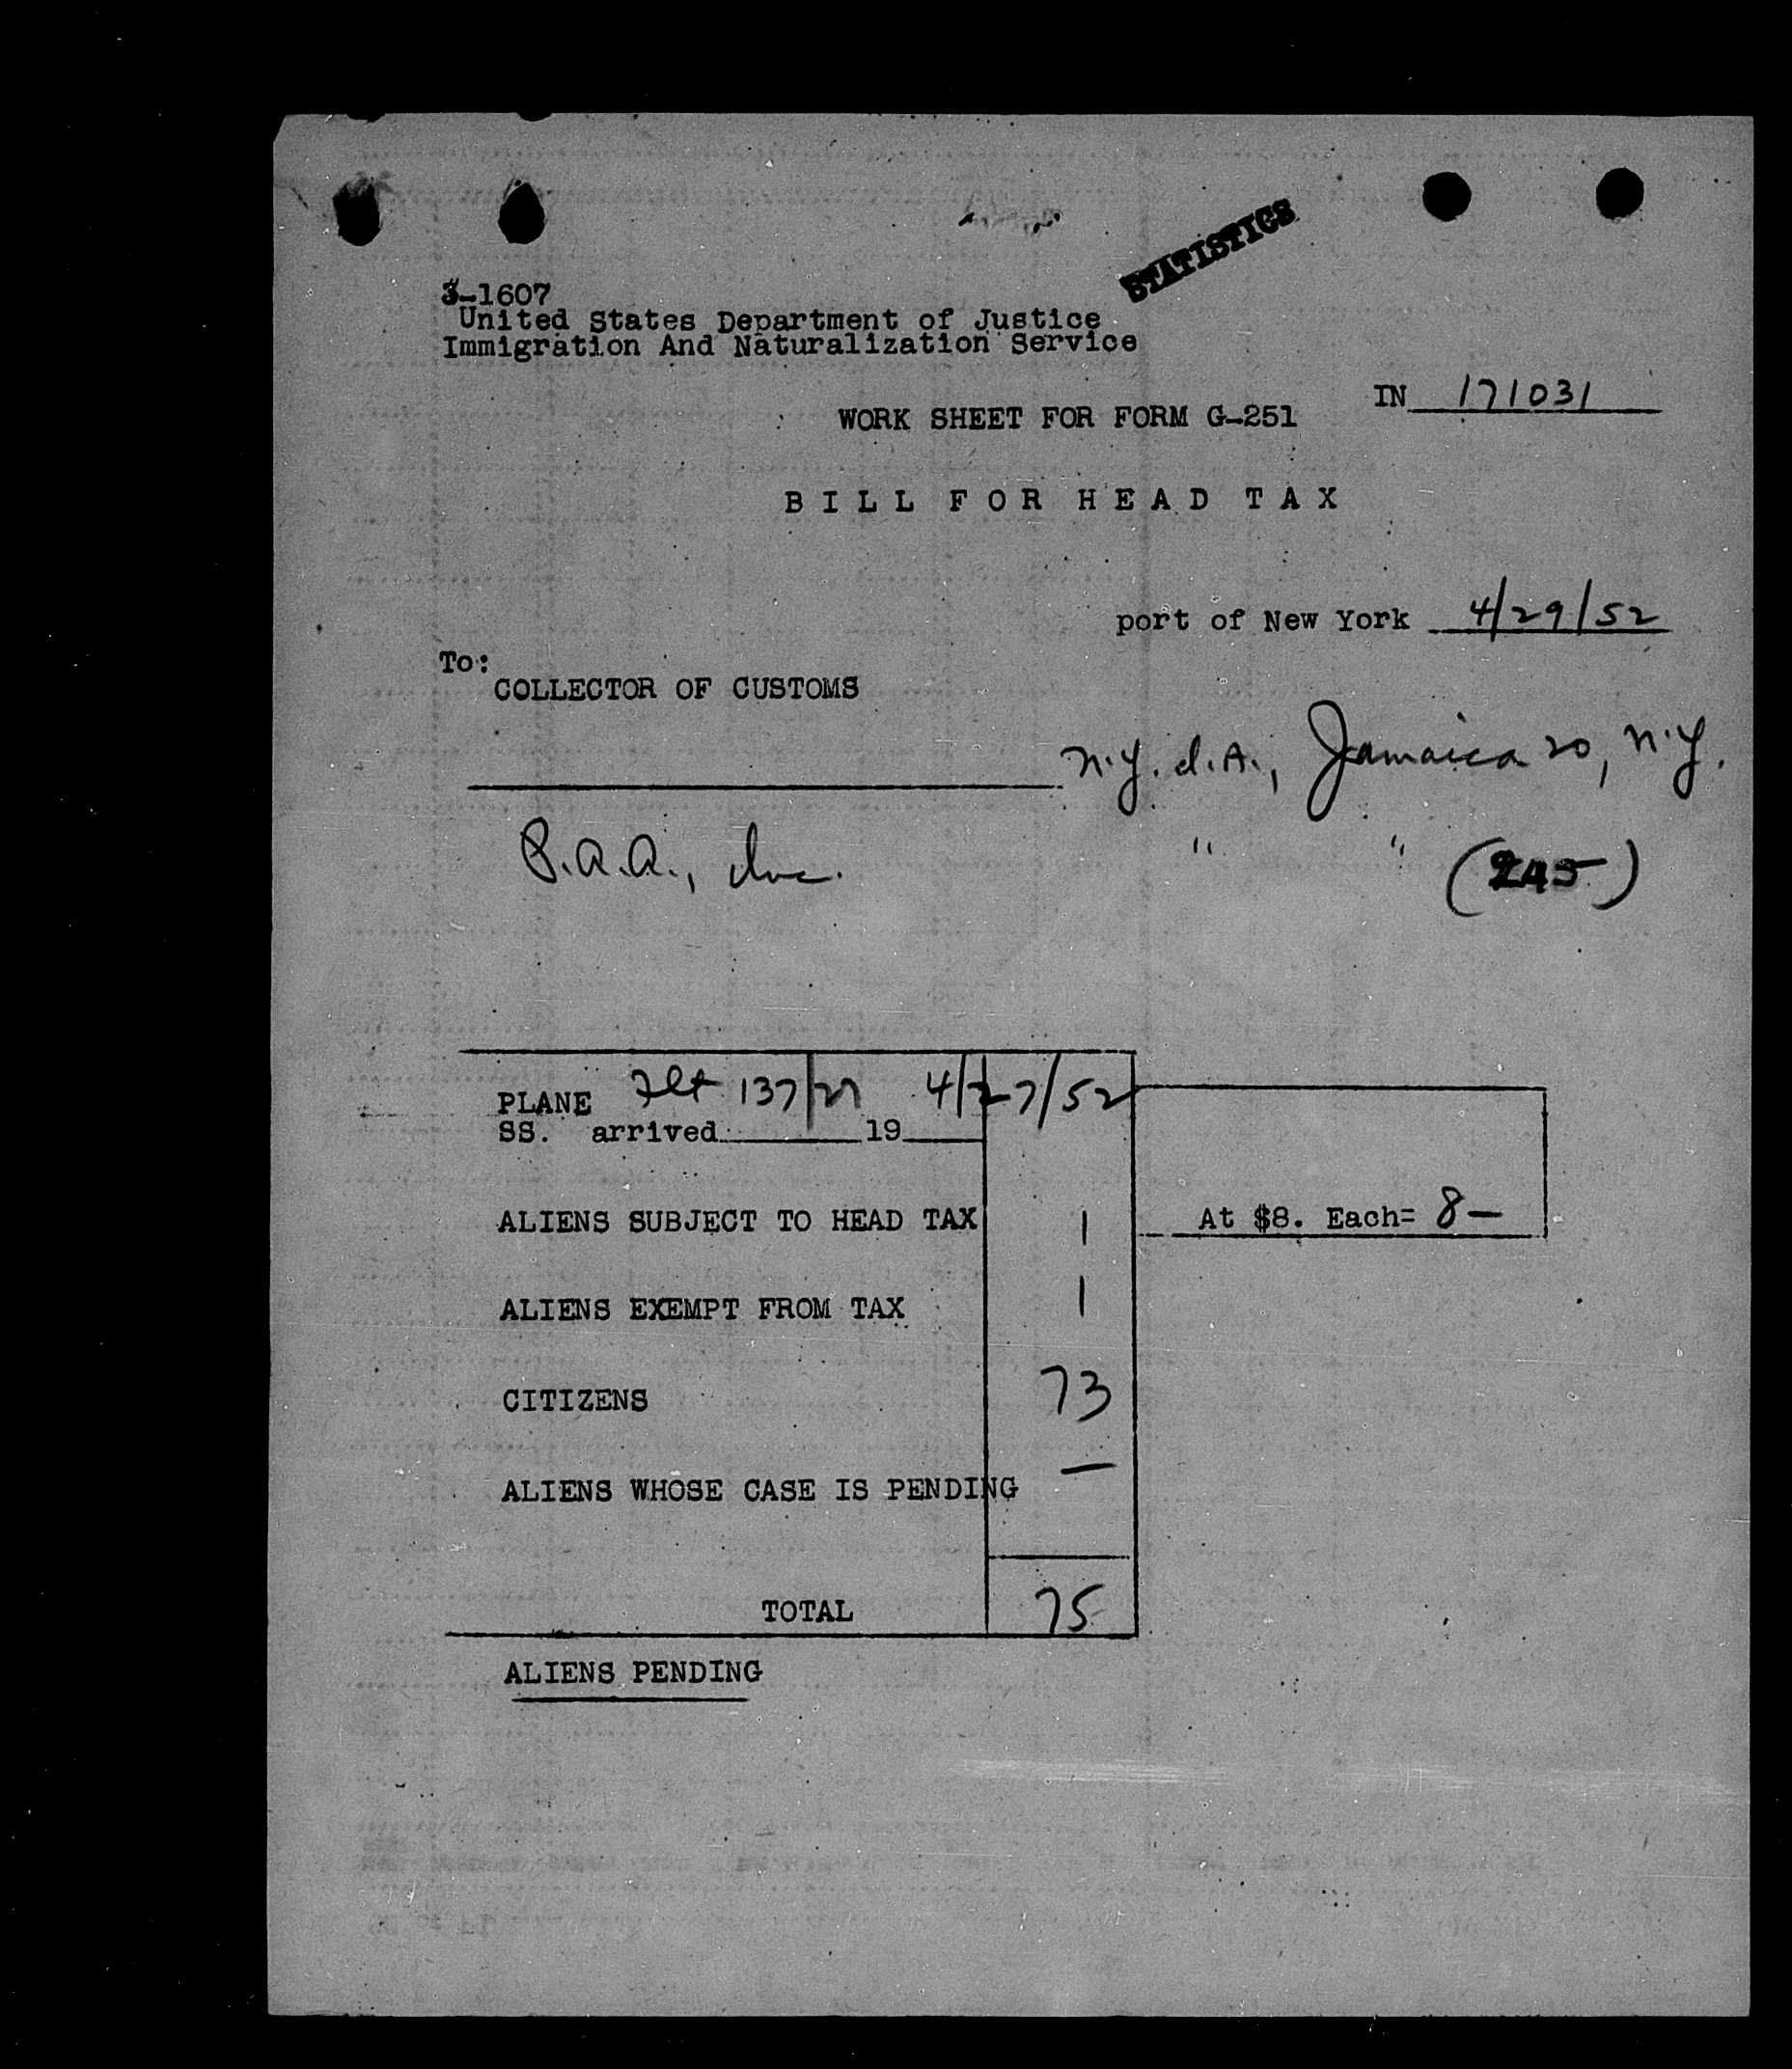 STATISTICS
3-1607
United States Department of Justice
Immigration And Naturalization Service
IN 171031
WORK SHEET FOR FORM G-251
BILL FOR HEAD TAX
port of New York 4/29/52
To:
COLLECTOR OF CUSTOMS
N.Y. I.A., Jamaica 20, N.Y.
P.A.A., Inc. " " (245)
PLANE Flt 137/27 4/27/52
SS. arrived 19
ALIENS SUBJECT TO HEAD TAX 1 At $8. Each= 8—
ALIENS EXEMPT FROM TAX 1
CITIZENS 73
ALIENS WHOSE CASE IS PENDING —
TOTAL 75
ALIENS PENDING